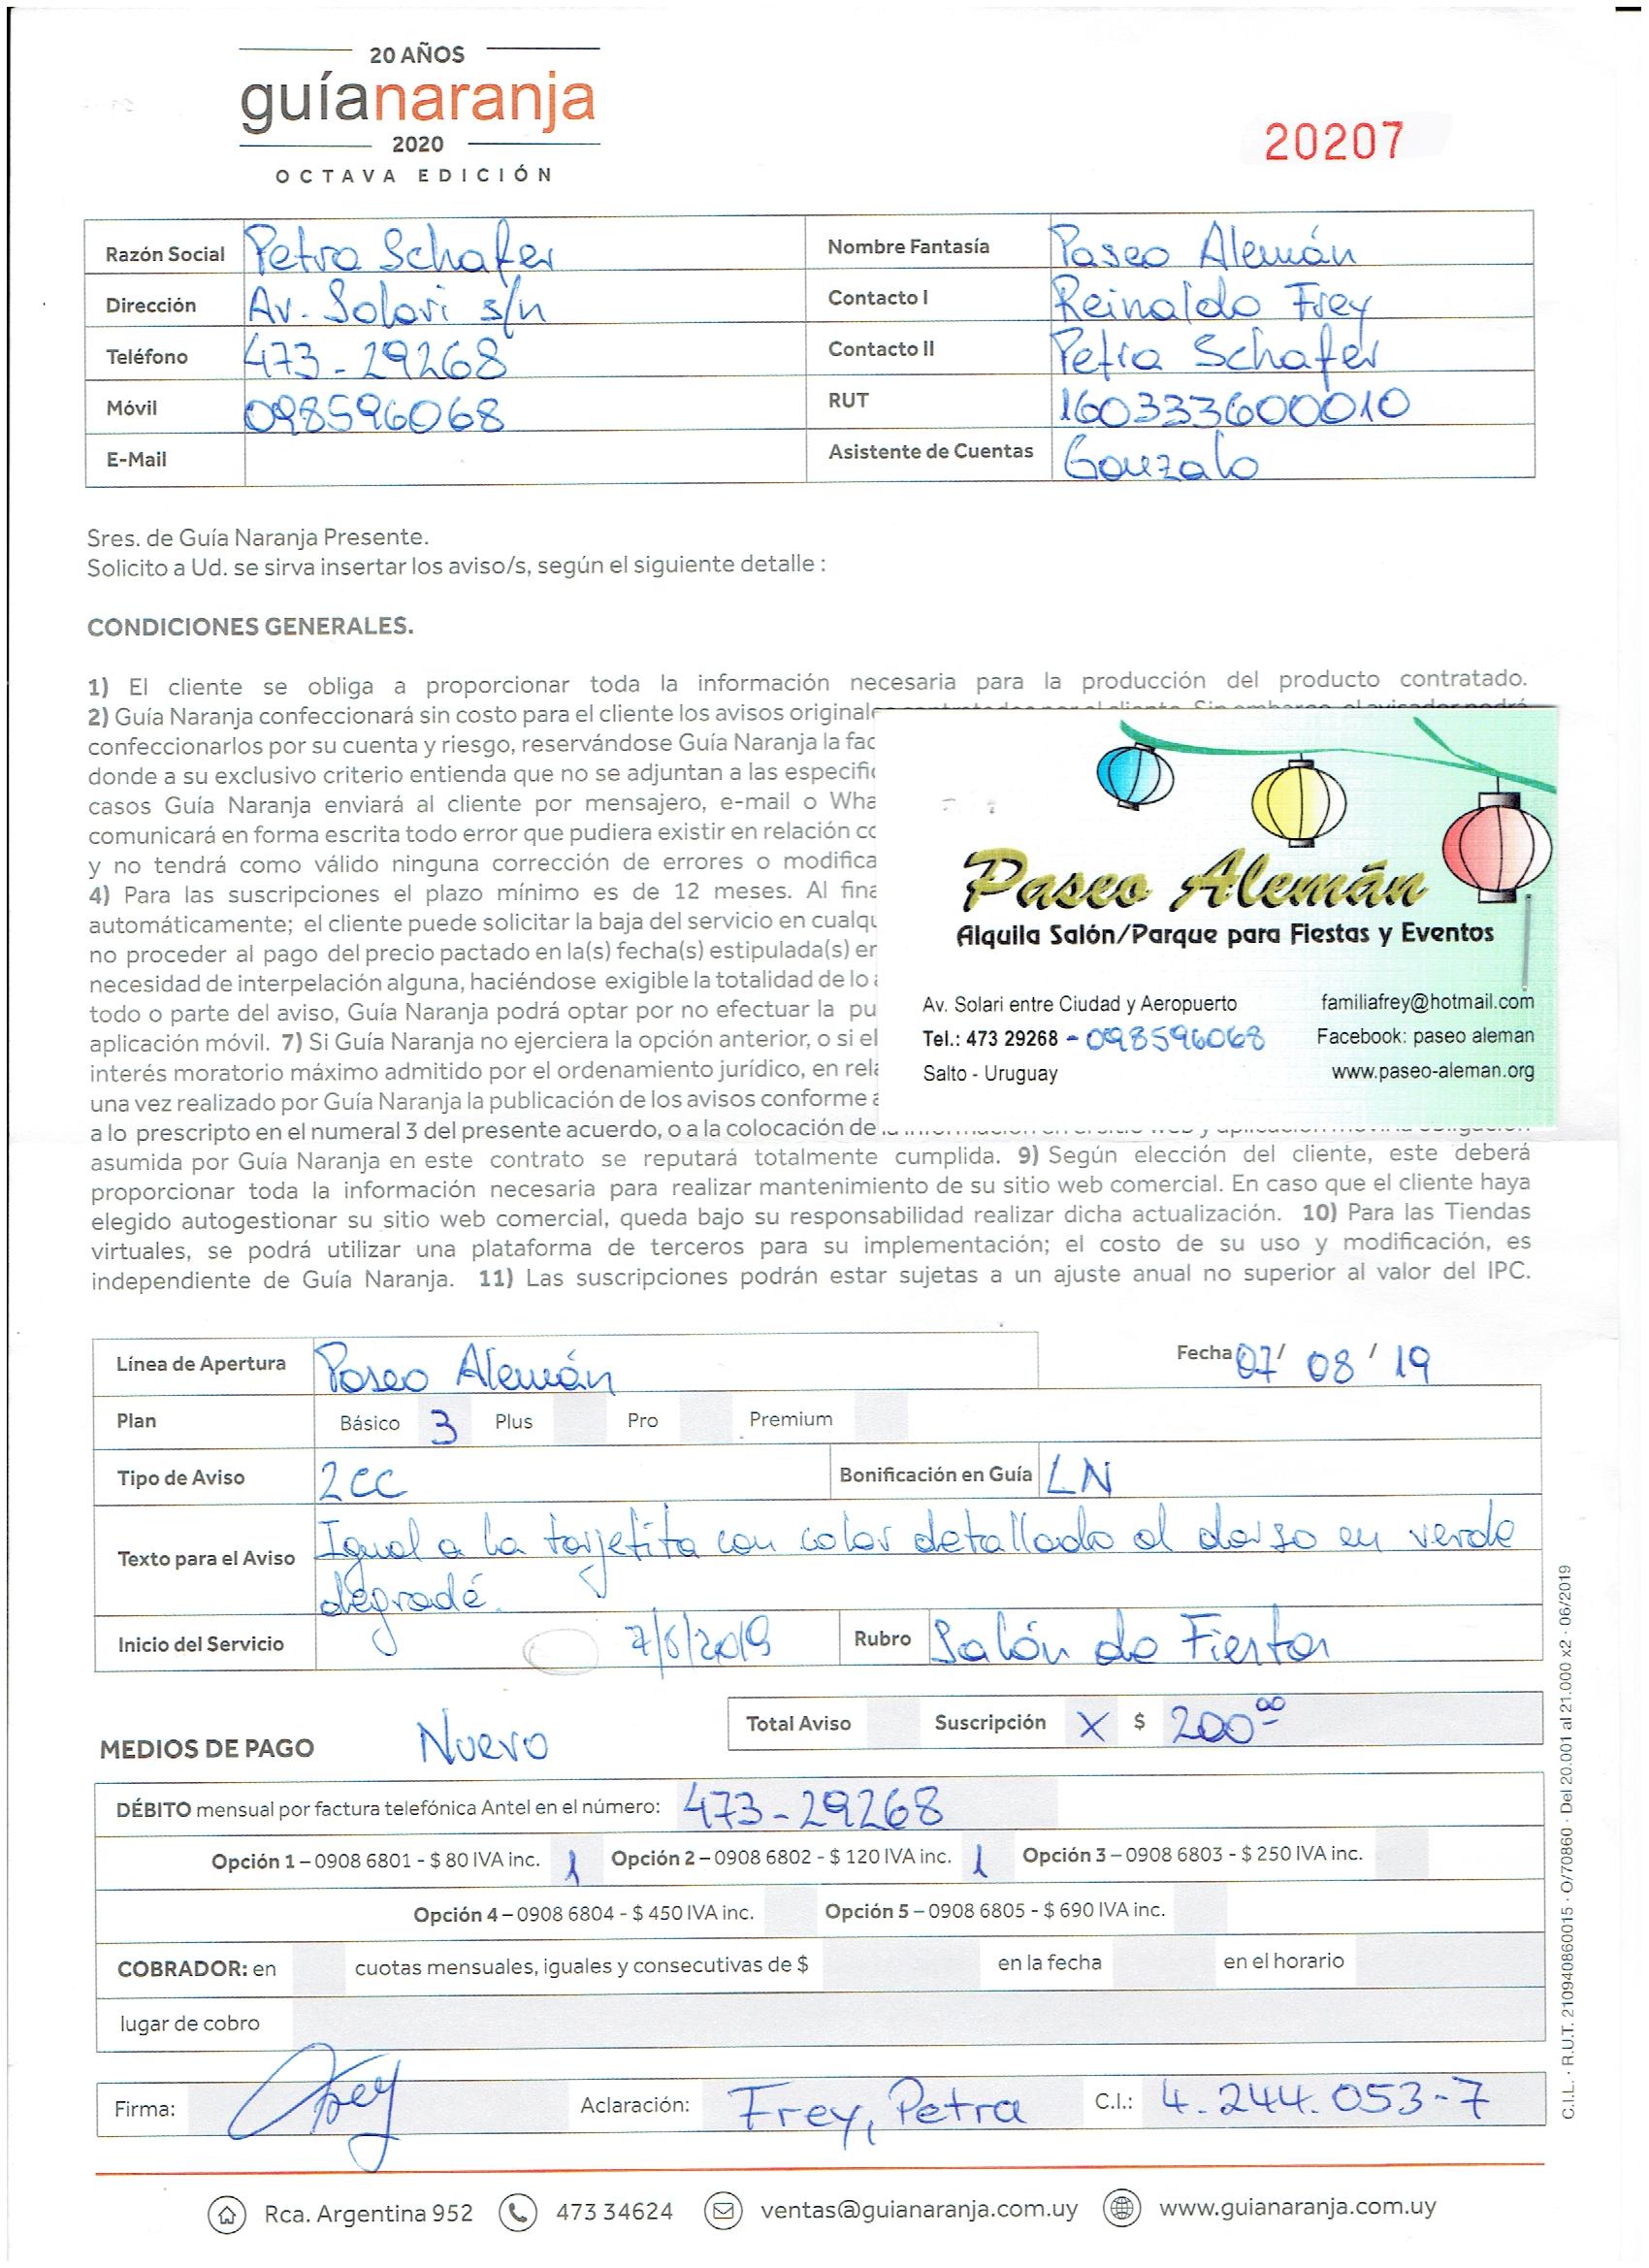 20 AÑOS
guíanaranja
2020
OCTAVA EDICIÓN
20207
Razón Social Petra Schafer Nombre Fantasía Paseo Alemán
Dirección Av. Solari s/n Contacto I Reinaldo Frey
Teléfono 473-29268 Contacto II Petra Schafer
Móvil 098596068 RUT 160333600010
E-Mail Asistente de Cuentas Gonzalo
Sres. de Guía Naranja Presente.
Solicito a Ud. se sirva insertar los aviso/s, según el siguiente detalle :
CONDICIONES GENERALES.
1) El cliente se obliga a proporcionar toda la información necesaria para la producción del producto contratado.
2) Guía Naranja confeccionará sin costo para el cliente los avisos original
confeccionarlos por su cuenta y riesgo, reservándose Guía Naranja la fac
donde a su exclusivo criterio entienda que no se adjuntan a las especific
casos Guía Naranja enviará al cliente por mensajero, e-mail o Wha
comunicará en forma escrita todo error que pudiera existir en relación co
y no tendrá como válido ninguna corrección de errores o modifica
4) Para las suscripciones el plazo mínimo es de 12 meses. Al fina
automáticamente; el cliente puede solicitar la baja del servicio en cualqu
no proceder al pago del precio pactado en la(s) fecha(s) estipulada(s) en
necesidad de interpelación alguna, haciéndose exigible la totalidad de lo
todo o parte del aviso, Guía Naranja podrá optar por no efectuar la pu
aplicación móvil. 7) Si Guía Naranja no ejerciera la opción anterior, o si el
interés moratorio máximo admitido por el ordenamiento jurídico, en rela
una vez realizado por Guía Naranja la publicación de los avisos conforme
a lo prescripto en el numeral 3 del presente acuerdo, o a la colocación de
asumida por Guía Naranja en este contrato se reputará totalmente cumplida. 9) Según elección del cliente, este deberá
proporcionar toda la información necesaria para realizar mantenimiento de su sitio web comercial. En caso que el cliente haya
elegido autogestionar su sitio web comercial, queda bajo su responsabilidad realizar dicha actualización. 10) Para las Tiendas
virtuales, se podrá utilizar una plataforma de terceros para su implementación; el costo de su uso y modificación, es
independiente de Guía Naranja. 11) Las suscripciones podrán estar sujetas a un ajuste anual no superior al valor del IPC.
Paseo Alemán
Alquila Salón/Parque para Fiestas y Eventos
Av. Solari entre Ciudad y Aeropuerto familiafrey@hotmail.com
Tel.: 473 29268 - 098596068 Facebook: paseo aleman
Salto - Uruguay www.paseo-aleman.org
Línea de Apertura Paseo Alemán Fecha 07/ 08 / 19
Plan Básico 3 Plus Pro Premium
Tipo de Aviso 2CC Bonificación en Guía LN
Texto para el Aviso Igual a la tarjetita con color detallado al dorso en verde
degradé.
Inicio del Servicio 7/8/2019 Rubro Salón de Fiestas
Total Aviso Suscripción X $ 200.00
MEDIOS DE PAGO Nuevo
DÉBITO mensual por factura telefónica Antel en el número: 473-29268
Opción 1 – 0908 6801 - $ 80 IVA inc. 1 Opción 2 – 0908 6802 - $ 120 IVA inc. 1 Opción 3 – 0908 6803 - $ 250 IVA inc.
Opción 4 – 0908 6804 - $ 450 IVA inc. Opción 5 – 0908 6805 - $ 690 IVA inc.
COBRADOR: en cuotas mensuales, iguales y consecutivas de $ en la fecha en el horario
lugar de cobro
Firma: Frey Aclaración: Frey, Petra C.I.: 4.244.053-7
Rca. Argentina 952 473 34624 ventas@guianaranja.com.uy www.guianaranja.com.uy
C.I.L. · R.U.T. 210940860015 · O/70860 · Del 20.001 al 21.000 x2 · 06/2019